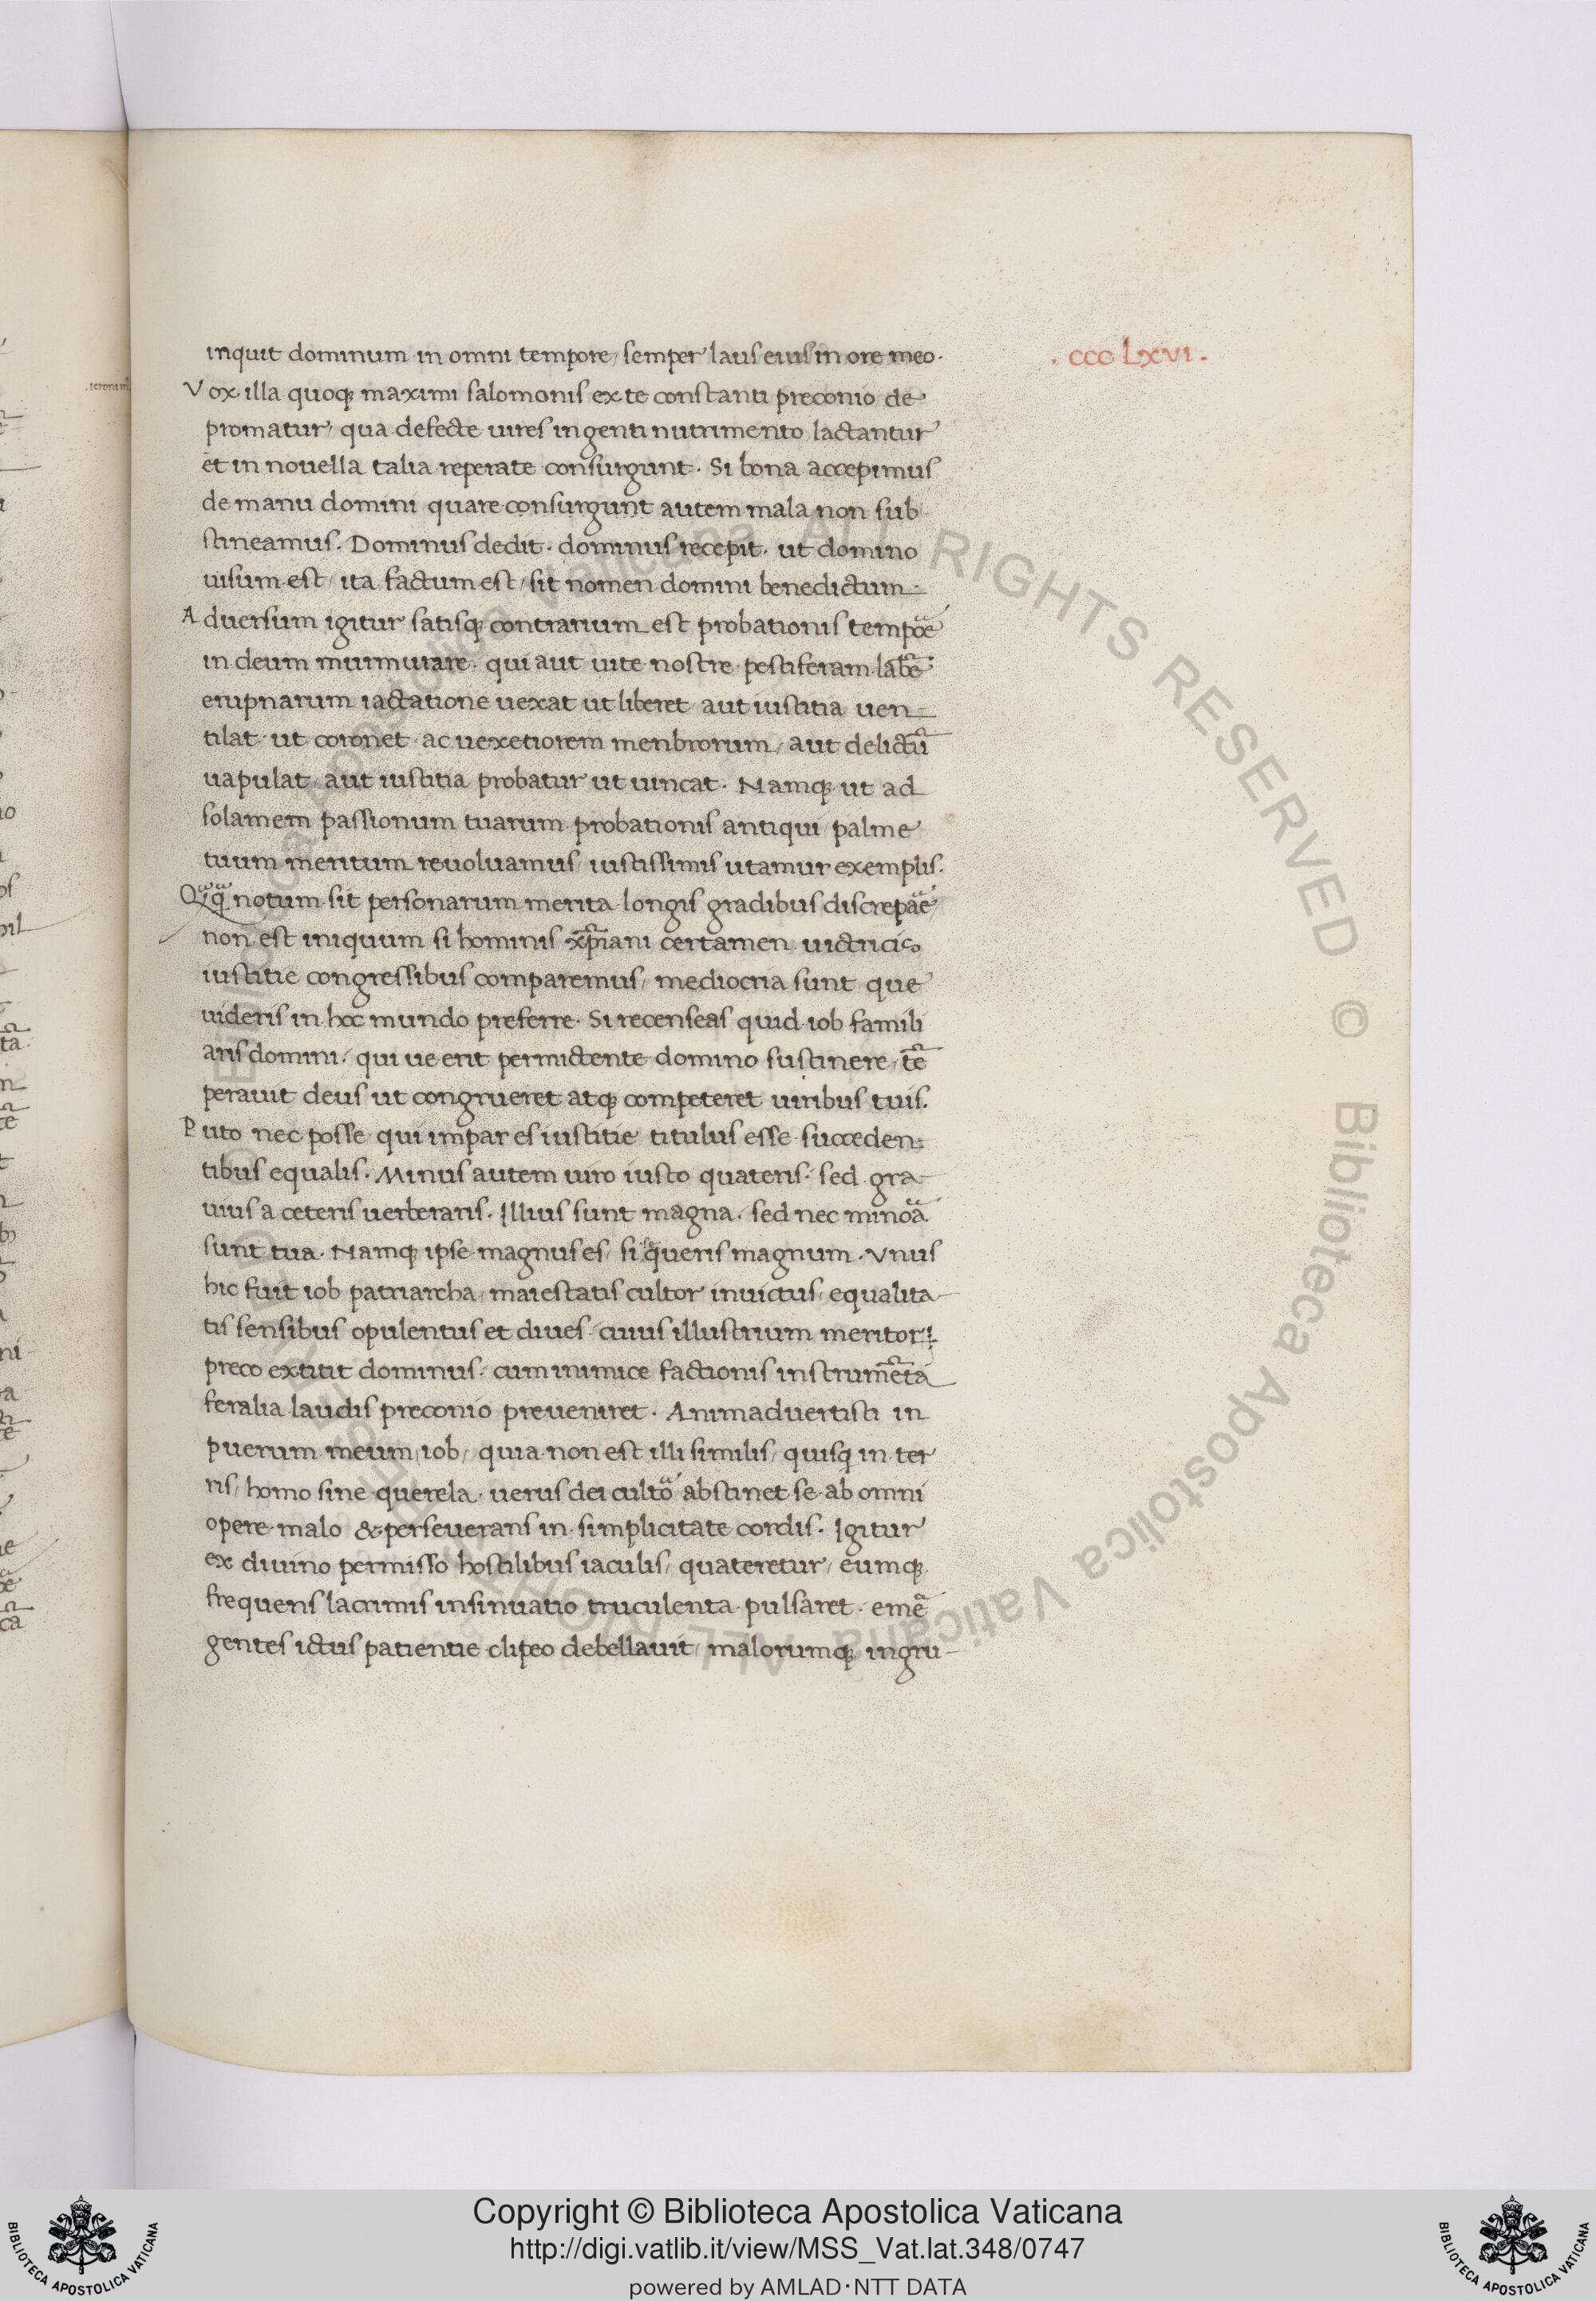 inquit dominum in omni tempore, semper laus eius in ore meo.
. CCC LXVI .
Vox illa quoqꝫ maximi salomonis ex te constanti preconio de
promatur, qua defecte uires ingenti nutrimento lactantur
et in nouella talia reperate consurgunt. Si bona accepimus
de manu domini quare consurgunt autem mala non sub
stineamus. Dominus dedit. dominus recepit. ut domino
uisum est, ita factum est, sit nomen domini benedictum
Aduersum igitur satisqꝫ contrarium est probationis tempoē
in deum murmurare. qui aut uite nostre pestiferam labē
erupnarum iactatione uexat ut liberet aut iustitia uen
tilat ut coronet ac uexetiorem menbrorum, aut delictū
uapulat, aut iustitia probatur ut uincat. Namqꝫ ut ad
solamem passionum tuarum probationis antiqui palme
tuum meritum reuoluamus, iustissimis utamur exemplis.
notum sit personarum merita longis gradibus discrepāe
non est iniquum si hominis xp̄iani certamen uictricis
iustitie congressibus comparemus, mediocria sunt que
uideris in hoc mundo preferre. Si recenseas quid iob famili
aris domini. qui ue erit permictente domino sustinere, tē
perauit deus ut congrueret atqꝫ competeret uiribus tuis.
Puto nec posse qui impar es iustitie titulus esse succeden
tibus equalis. Minus autem uiro iusto quateris. sed gra
uius a ceteris uerberaris. Illius sunt magna. sed nec minoā
sunt tua. Namqꝫ ipse magnus es, si queris magnum. Vnus
hic fuit iob patriarcha, maiestatis cultor inuictus, equalita
tis sensibus opulentus et diues, cuius illustrium meritoꝝ
preco extitit dominus. cum inimice factionis instrumēta
feralia laudis preconio preueniret. Animaduertisti in
puerum meum, iob, quia non est illi similis, quisq̄ in ter
ris, homo sine querela. uerus dei cultō abstinet se ab omni
opere malo & perseuerans in simplicitate cordis. Igitur
ex diuino permisso hostilibus iaculis, quateretur, eumqꝫ
frequens lacrimis insinuatio truculenta pulsaret. emē
gentes ictus patientie clipeo debellauit, malorumqꝫ ingru
ALL RIGHTS RESERVED © Biblioteca Apostolica Vaticana
Copyright © Biblioteca Apostolica Vaticana
http://digi.vatlib.it/view/MSS_Vat.lat.348/0747
powered by AMLAD·NTT DATA
BIBLIOTECA APOSTOLICA VATICANA
BIBLIOTECA APOSTOLICA VATICANA